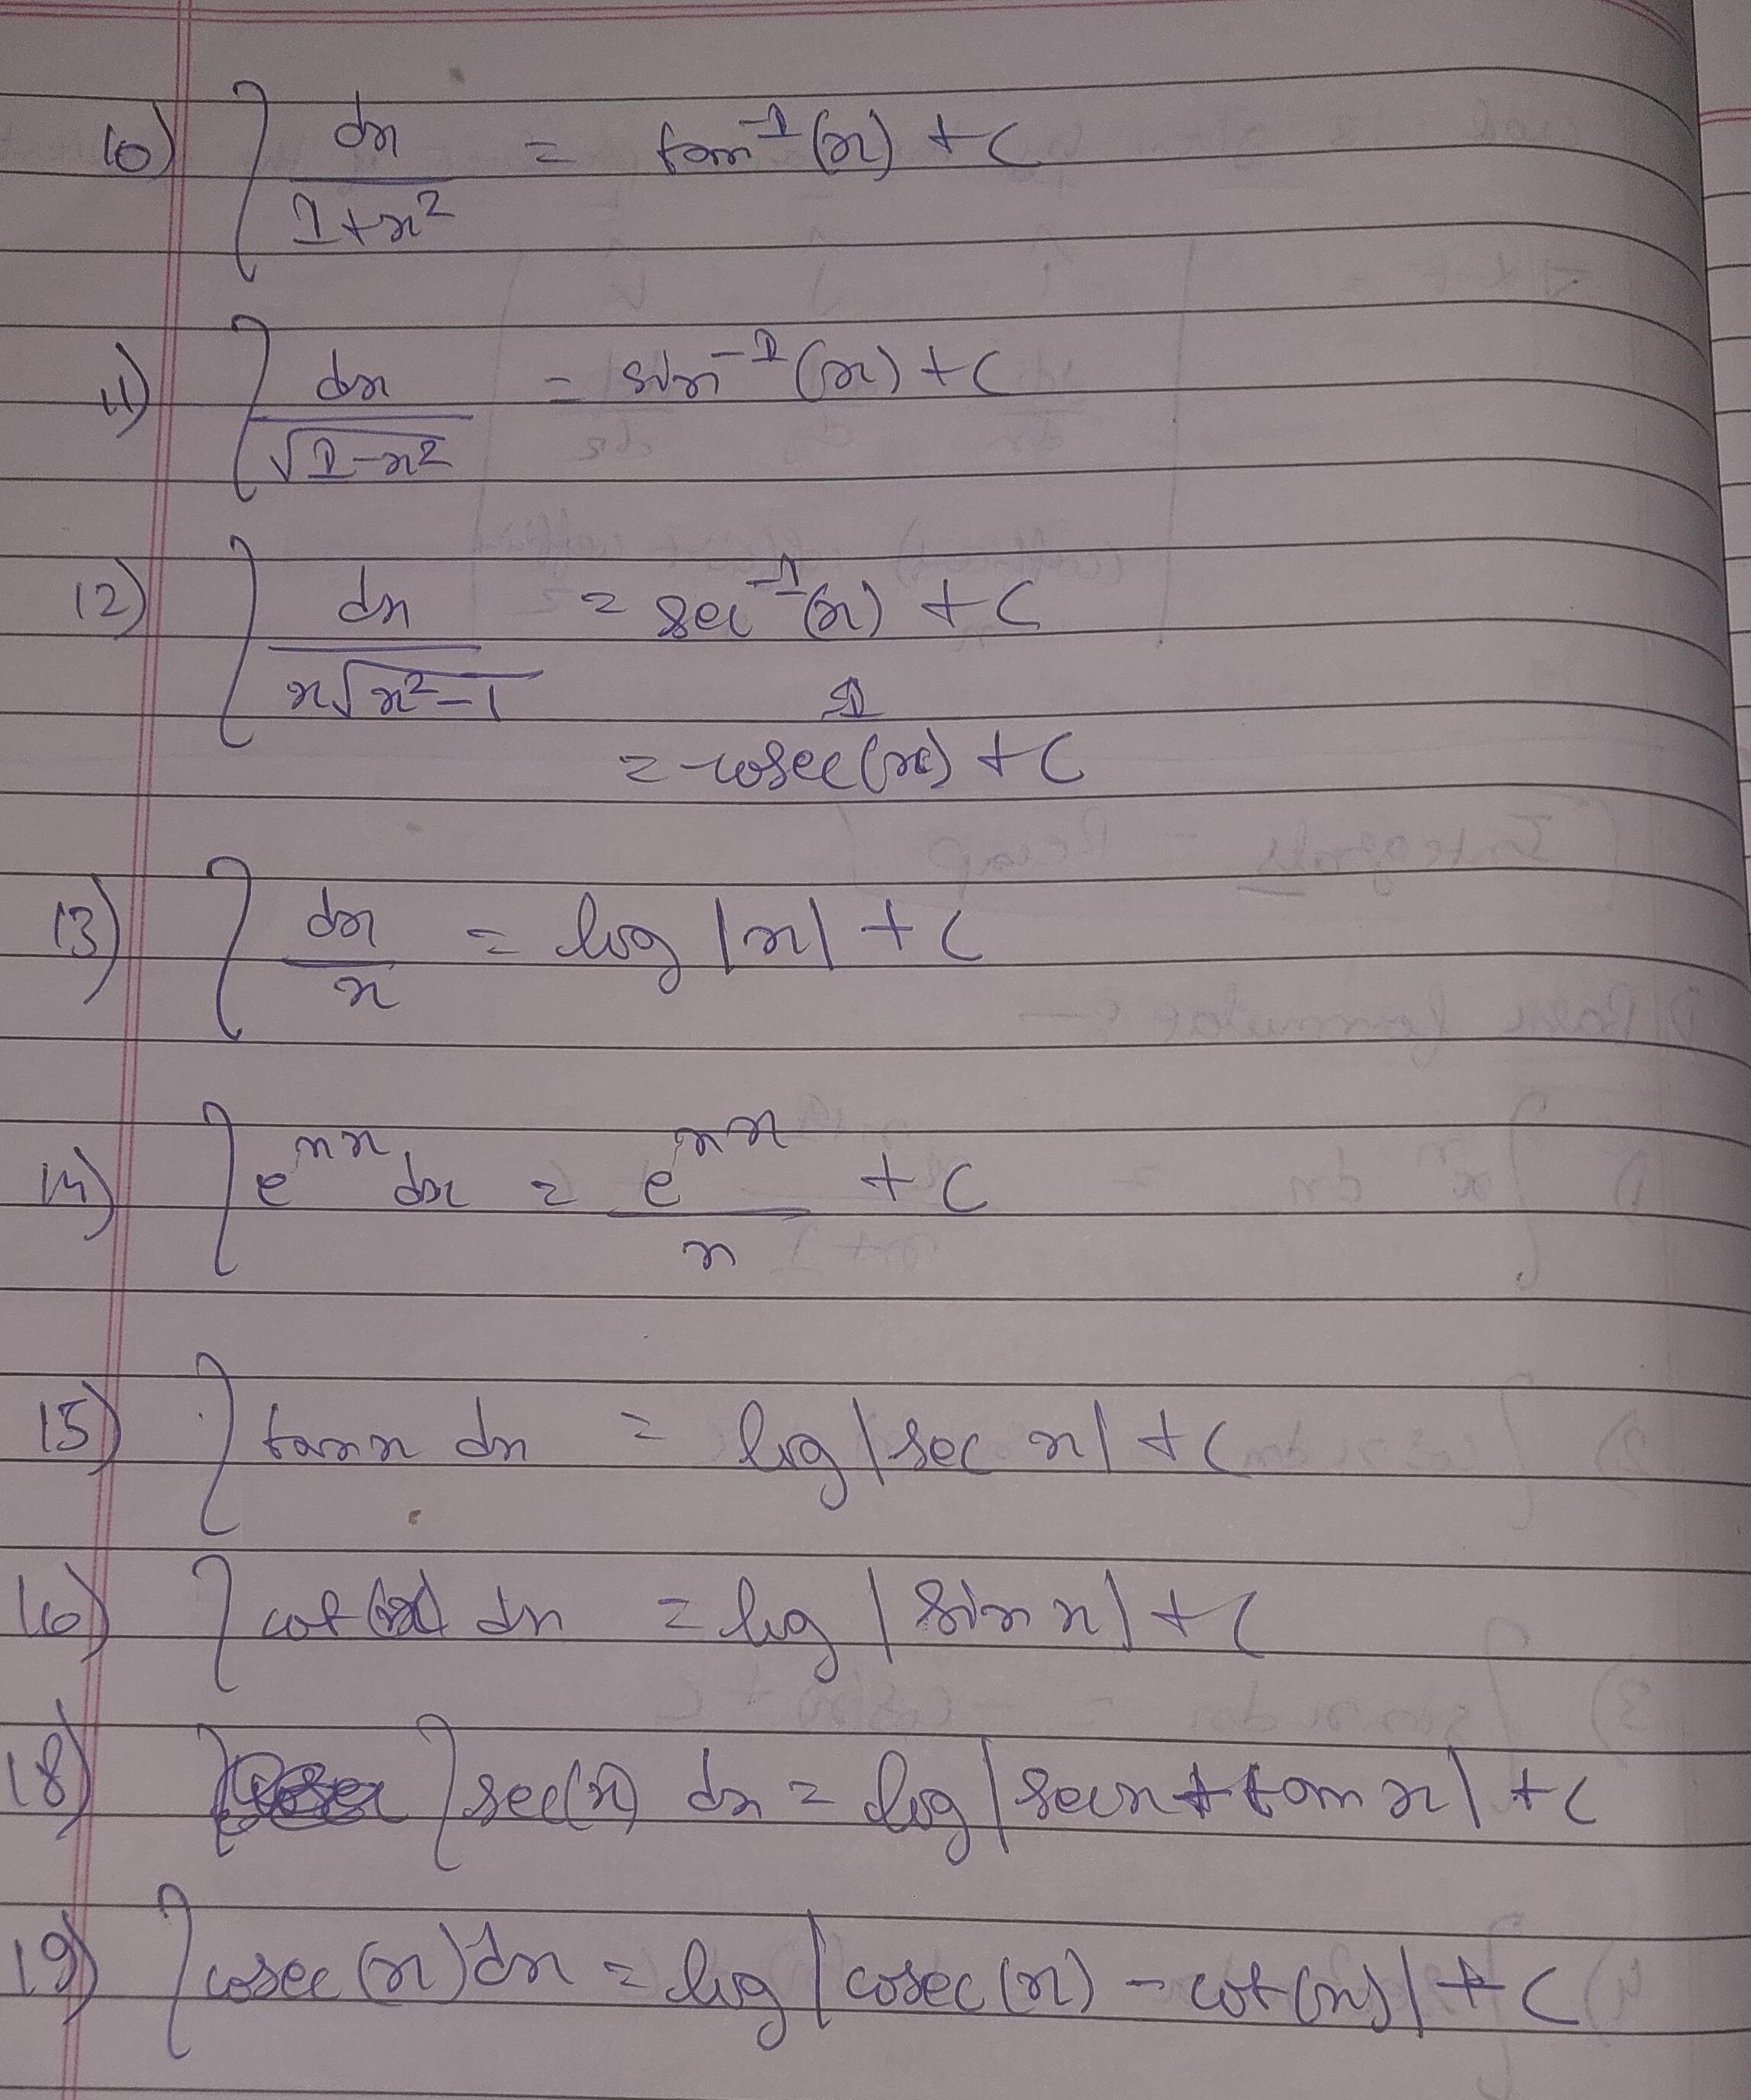 10) ∫ dx/(1+x²) = tan⁻¹(x) + C
11) ∫ dx/√(1-x²) = sin⁻¹(x) + C
12) ∫ dx/(x√(x²-1)) = sec⁻¹(x) + C
= -cosec⁻¹(x) + C
13) ∫ dx/x = log |x| + C
14) ∫ eⁿˣ dx = eⁿˣ/n + C
15) ∫ tanx dx = log |sec x| + C
16) ∫ cot(x) dx = log |sin x| + C
18) ∫ sec(x) dx = log |secx + tan x| + C
19) ∫ cosec(x) dx = log |cosec(x) - cot(x)| + C